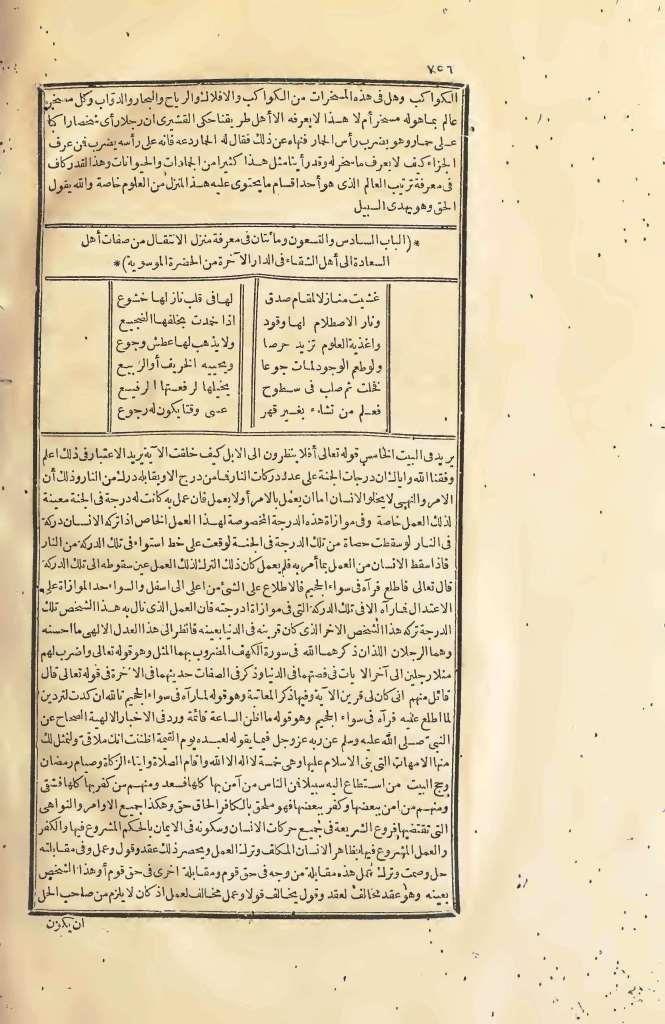 ٧٥٦
الكواكب وهل فى هذه المسخرات من الكواكب والافلاك والرياح والبحار والدواب وكل مسخر
عالم بما هو له مسخر أم لا هذا لا يعرفه الا أهل طريقنا حكى القشيرى ان رجلا رأى شخصا راكبا
على حمار وهو يضرب رأس الحمار فنهاه عن ذلك فقال له الحمار دعه فانه على رأسه يضرب فمن عرف
الجزاء كيف لا يعرف ما سخر له وقد رأينا مثل هذا كثيرا من الجمادات والحيوانات وهذا القدر كاف
فى معرفة ترتيب العالم الذى هو أحد اقسام ما يحتوى عليه هذا المنزل من العلوم خاصة والله يقول
الحق وهو يهدى السبيل
*(الباب السادس والتسعون ومائتان فى معرفة منزل الانتقال من صفات أهل
السعادة الى أهل الشقاء فى الدار الآخرة من الحضرة الموسوية)*
غشيت منازلا لمقام صدق لها فى قلب نازلها خشوع
ونار الاصطلام لها وقود اذا خمدت يخلفها النجيع
واغذية العلوم تزيد حرصا ولا يذهب لها عطش وجوع
ولو طعم الوجود لمات جوعا ويحييه الخريف أو الربيع
تم صلب فى سطوح يخيلها لرفعتها الرفيع
فعلم من تشاء بغير قهر عسى وقتا يكون له رجوع
يريد فى البيت الخامس قوله تعالى أفلا ينظرون الى الابل كيف خلقت الآية يريد الاعتبار فى ذلك اعلم
وفقنا الله واياك ان درجات الجنة على عدد دركات النار فما من درج الا ويقابله درك من النار وذلك أن
الامر والنهى لا يخلو الانسان اما ان يعمل بالامر أو لا يعمل فان عمل به كانت له درجة فى الجنة معينة
لذلك العمل خاصة وفى موازاة هذه الدرجة المخصوصة لهذا العمل الخاص اذا تركه الانسان دركة
فى النار لو سقطت حصاة من تلك الدرجة فى الجنة لوقعت على خط استواء فى تلك الدركة من النار
فاذا سقط الانسان من العمل بما أمر به فلم يعمل كان ذلك الترك لذلك العمل عين سقوطه الى تلك الدركة
قال تعالى فاطلع فرآه فى سواء الجحيم فالاطلاع على الشئ من اعلى الى اسفل والسواء حد الموازاة على
الاعتدال فما رآه الا فى تلك الدركة التى فى موازاة درجته فان العمل الذى نال به هذا الشخص تلك
الدرجة تركه هذا الشخص الاخر الذى كان قرينه فى الدنيا بعينه فانظر الى هذا العدل الالهى ما احسنه
وهما الرجلان اللذان ذكرهما الله فى سورة الكهف المضروب بهما المثل وهو قوله تعالى واضرب لهم
مثلا رجلين الى آخر الايات فى قصتهما فى الدنيا وذكر فى الصفات حديثهما فى الآخرة فى قوله تعالى قال
قائل منهم انى كان لى قرين الآية وفيها ذكر المعاتبة وهو قوله لما رآه فى سواء الجحيم تالله ان كدت لتردين
لما اطلع عليه فرآه فى سواء الجحيم وهو قوله ما اظن الساعة قائمة ورد فى الاخبار الالهية الصحاح عن
النبى صلى الله عليه وسلم عن ربه عز وجل فيما يقوله لعبده يوم القيمة اظننت انك ملاقى ولنمثل لك
منها الامهات التى بنى الاسلام عليها وهى خمسة لا اله الا الله واقام الصلاة وايتاء الزكاة وصيام رمضان
وحج البيت من استطاع اليه سبيلا فمن الناس من آمن بها كلها فسعد ومنهم من كفر بها كلها فشقى
ومنهم من امن ببعضها وكفر ببعضها فهو ملحق بالكافر الحاق حق وهكذا جميع الاوامر والنواهى
التى تقتضيها فروع الشريعة فى جميع حركات الانسان وسكونه فى الايمان بالحكم المشروع فيها والكفر
والعمل المشروع فيها بظاهر الانسان المكلف وترك العمل ويحصر ذلك عقد وقول وعمل وفى مقابلته
حل وصمت وترك عمل هذه مقابلة من وجه فى حق قوم ومقابلة اخرى فى حق قوم أو هذا الشخص
بعينه وهو عقد مخالف لعقد وقول يخالف قولا وعمل مخالف لعمل اذ كان لا يلزم من صاحب الحل
ان يكون